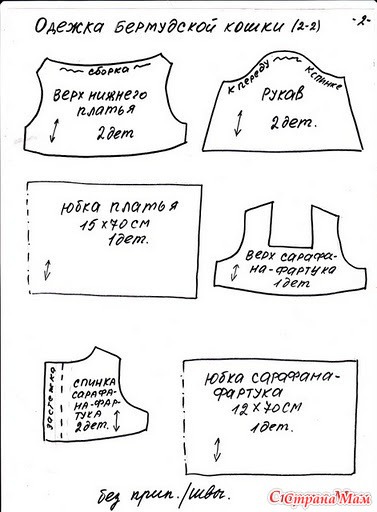 Одежка Бермудской кошки (2-2)
-2-
сборка
Верх нижнего
платья
2дет
к переду
к спинке
рукав
2дет.
Юбка платья
15х70см
1дет.
Верх сарафа-
на-фартука
1дет
застежка
спинка
сарафа-
на-фар-
тука
2дет.
Юбка сарафана-
фартука
12х70см
1дет.
без прип./швы.
СтранаМам